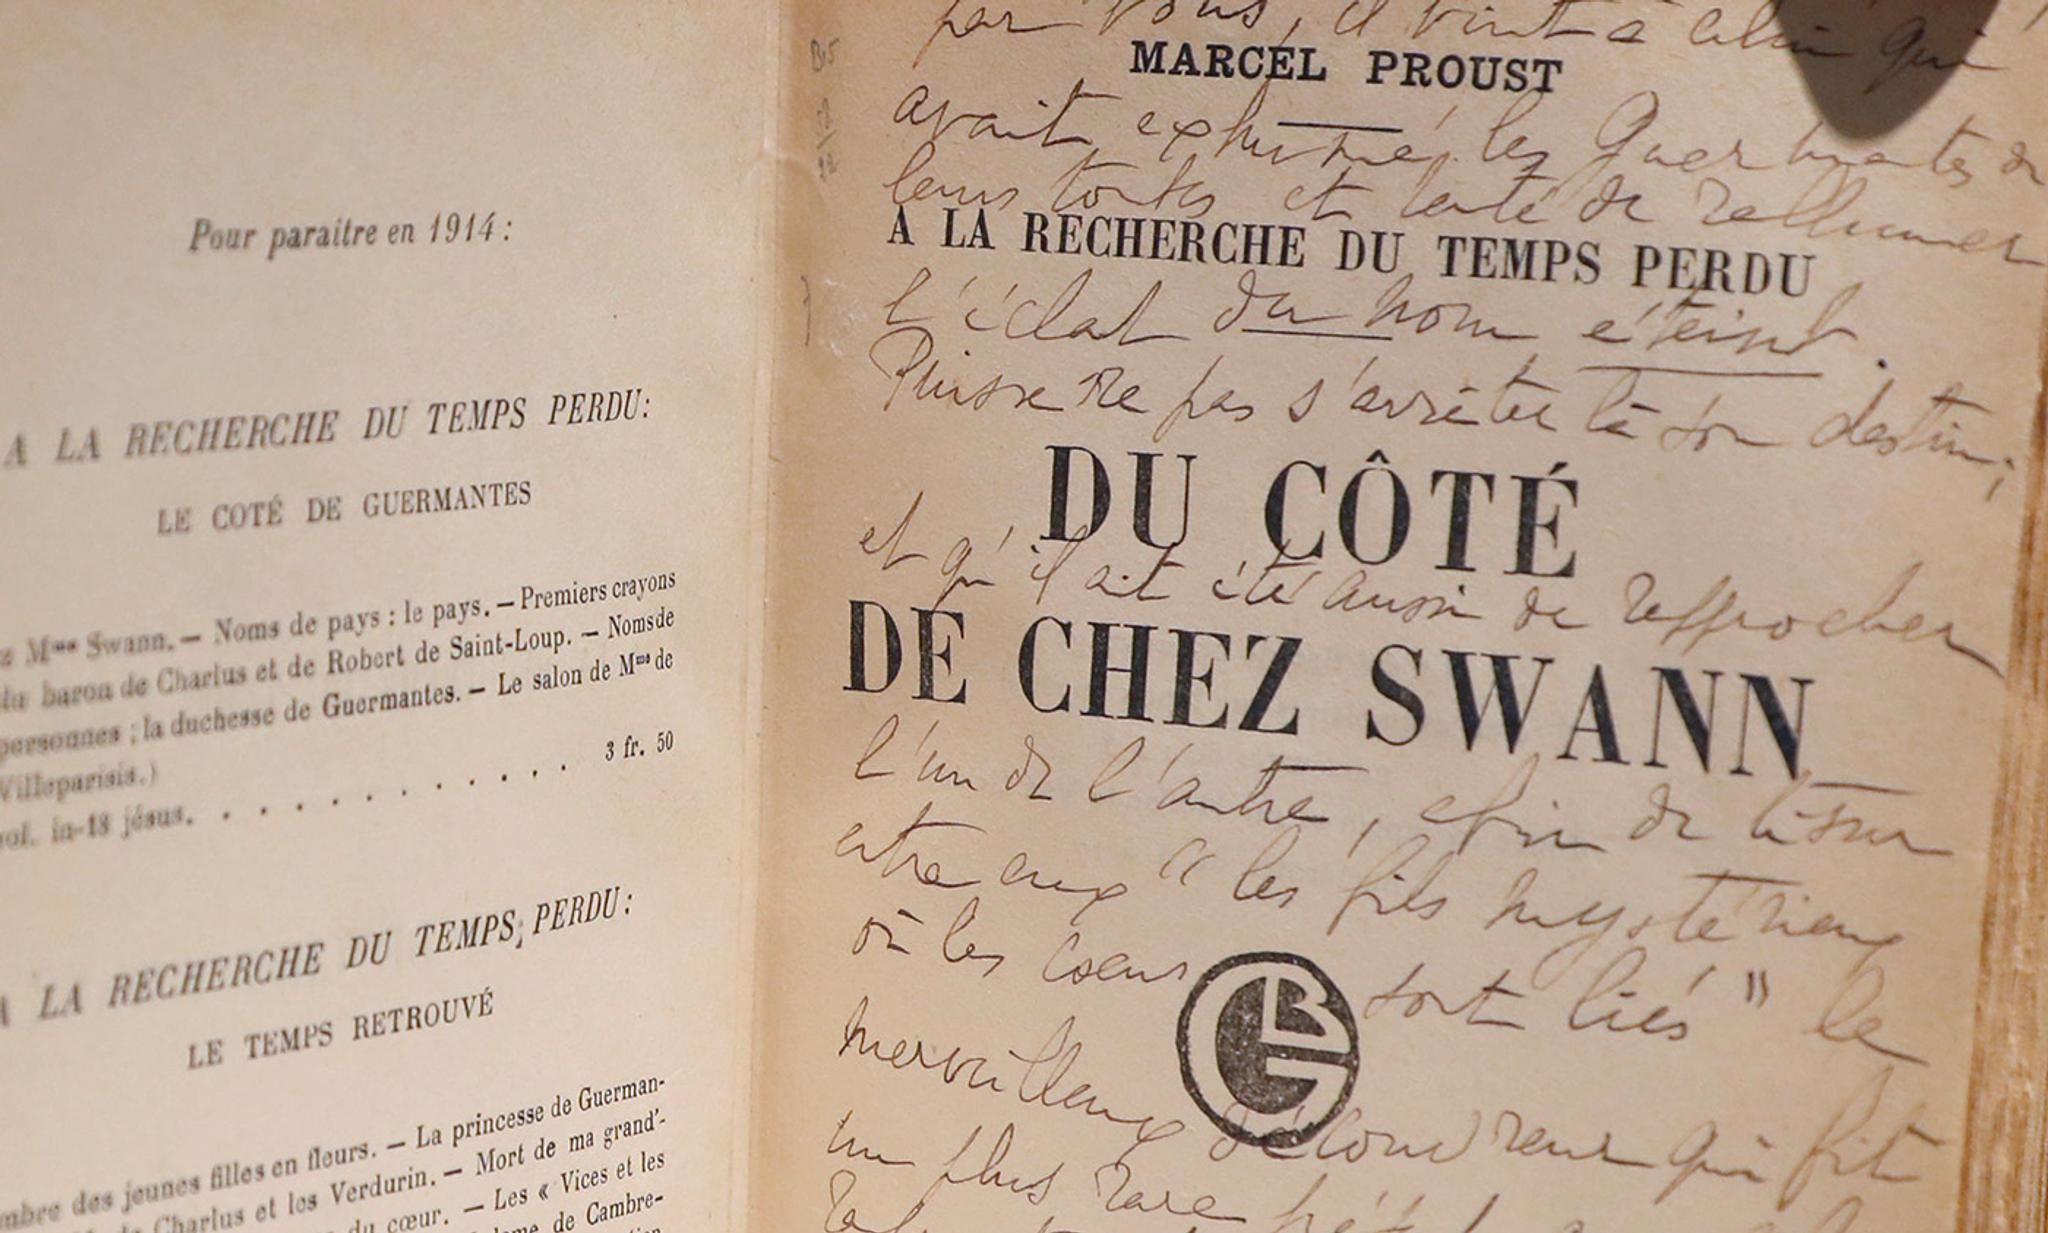 Pour paraitre en 1914 :
A LA RECHERCHE DU TEMPS PERDU:
LE COTÉ DE GUERMANTES
Mme Swann. — Noms de pays : le pays. — Premiers crayons
du baron de Charlus et de Robert de Saint-Loup. — Noms de
personnes ; la duchesse de Guermantes. — Le salon de Mme de
Villeparisis.)
vol. in-18 jésus. . . . . . . . . . . . 3 fr. 50
A LA RECHERCHE DU TEMPS PERDU:
LE TEMPS RETROUVÉ
des jeunes filles en fleurs. — La princesse de Guerman-
Charlus et les Verdurin. — Mort de ma grand'-
du cœur. — Les « Vices et les
de Cambre-
par vous, il vint à celui qui
MARCEL PROUST
avait exhumé les Guermantes de
leurs tombes et tenté de rallumer
A LA RECHERCHE DU TEMPS PERDU
l'éclat du nom éteint.
Puisse ne pas s'arrêter là son destin ;
DU CÔTÉ
et qu'il ait été aussi de rapprocher
DE CHEZ SWANN
l'un de l'autre, afin de tisser
entre eux "les fils mystérieux
où les cœurs sont liés" le
BG
merveilleux découvreur qui fit
un plus rare